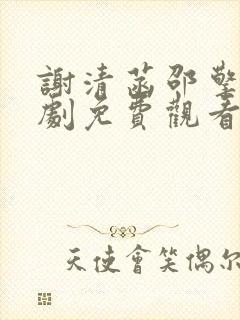 謝清菡邵擎
劇免費觀看
天使會笑偶尔